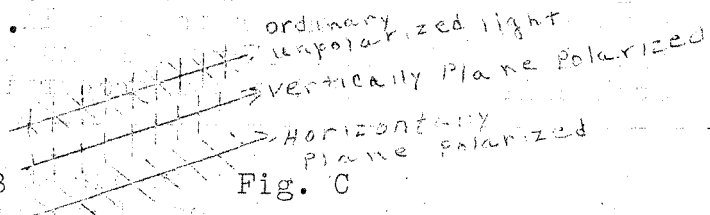 ordinary
unpolarized light
Vertically Plane Polarized
Horizontally
Plane Polarized
Fig. C